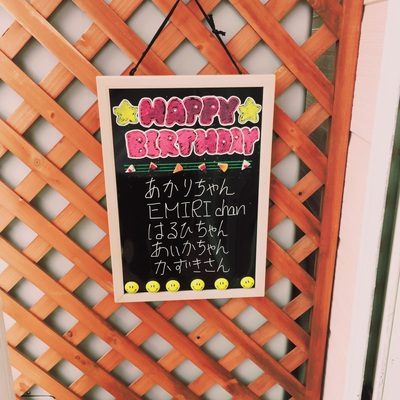 HAPPY
BIRTHDAY
あかりちゃん
EMIRI chan
はるひちゃん
あいかちゃん
かずきさん